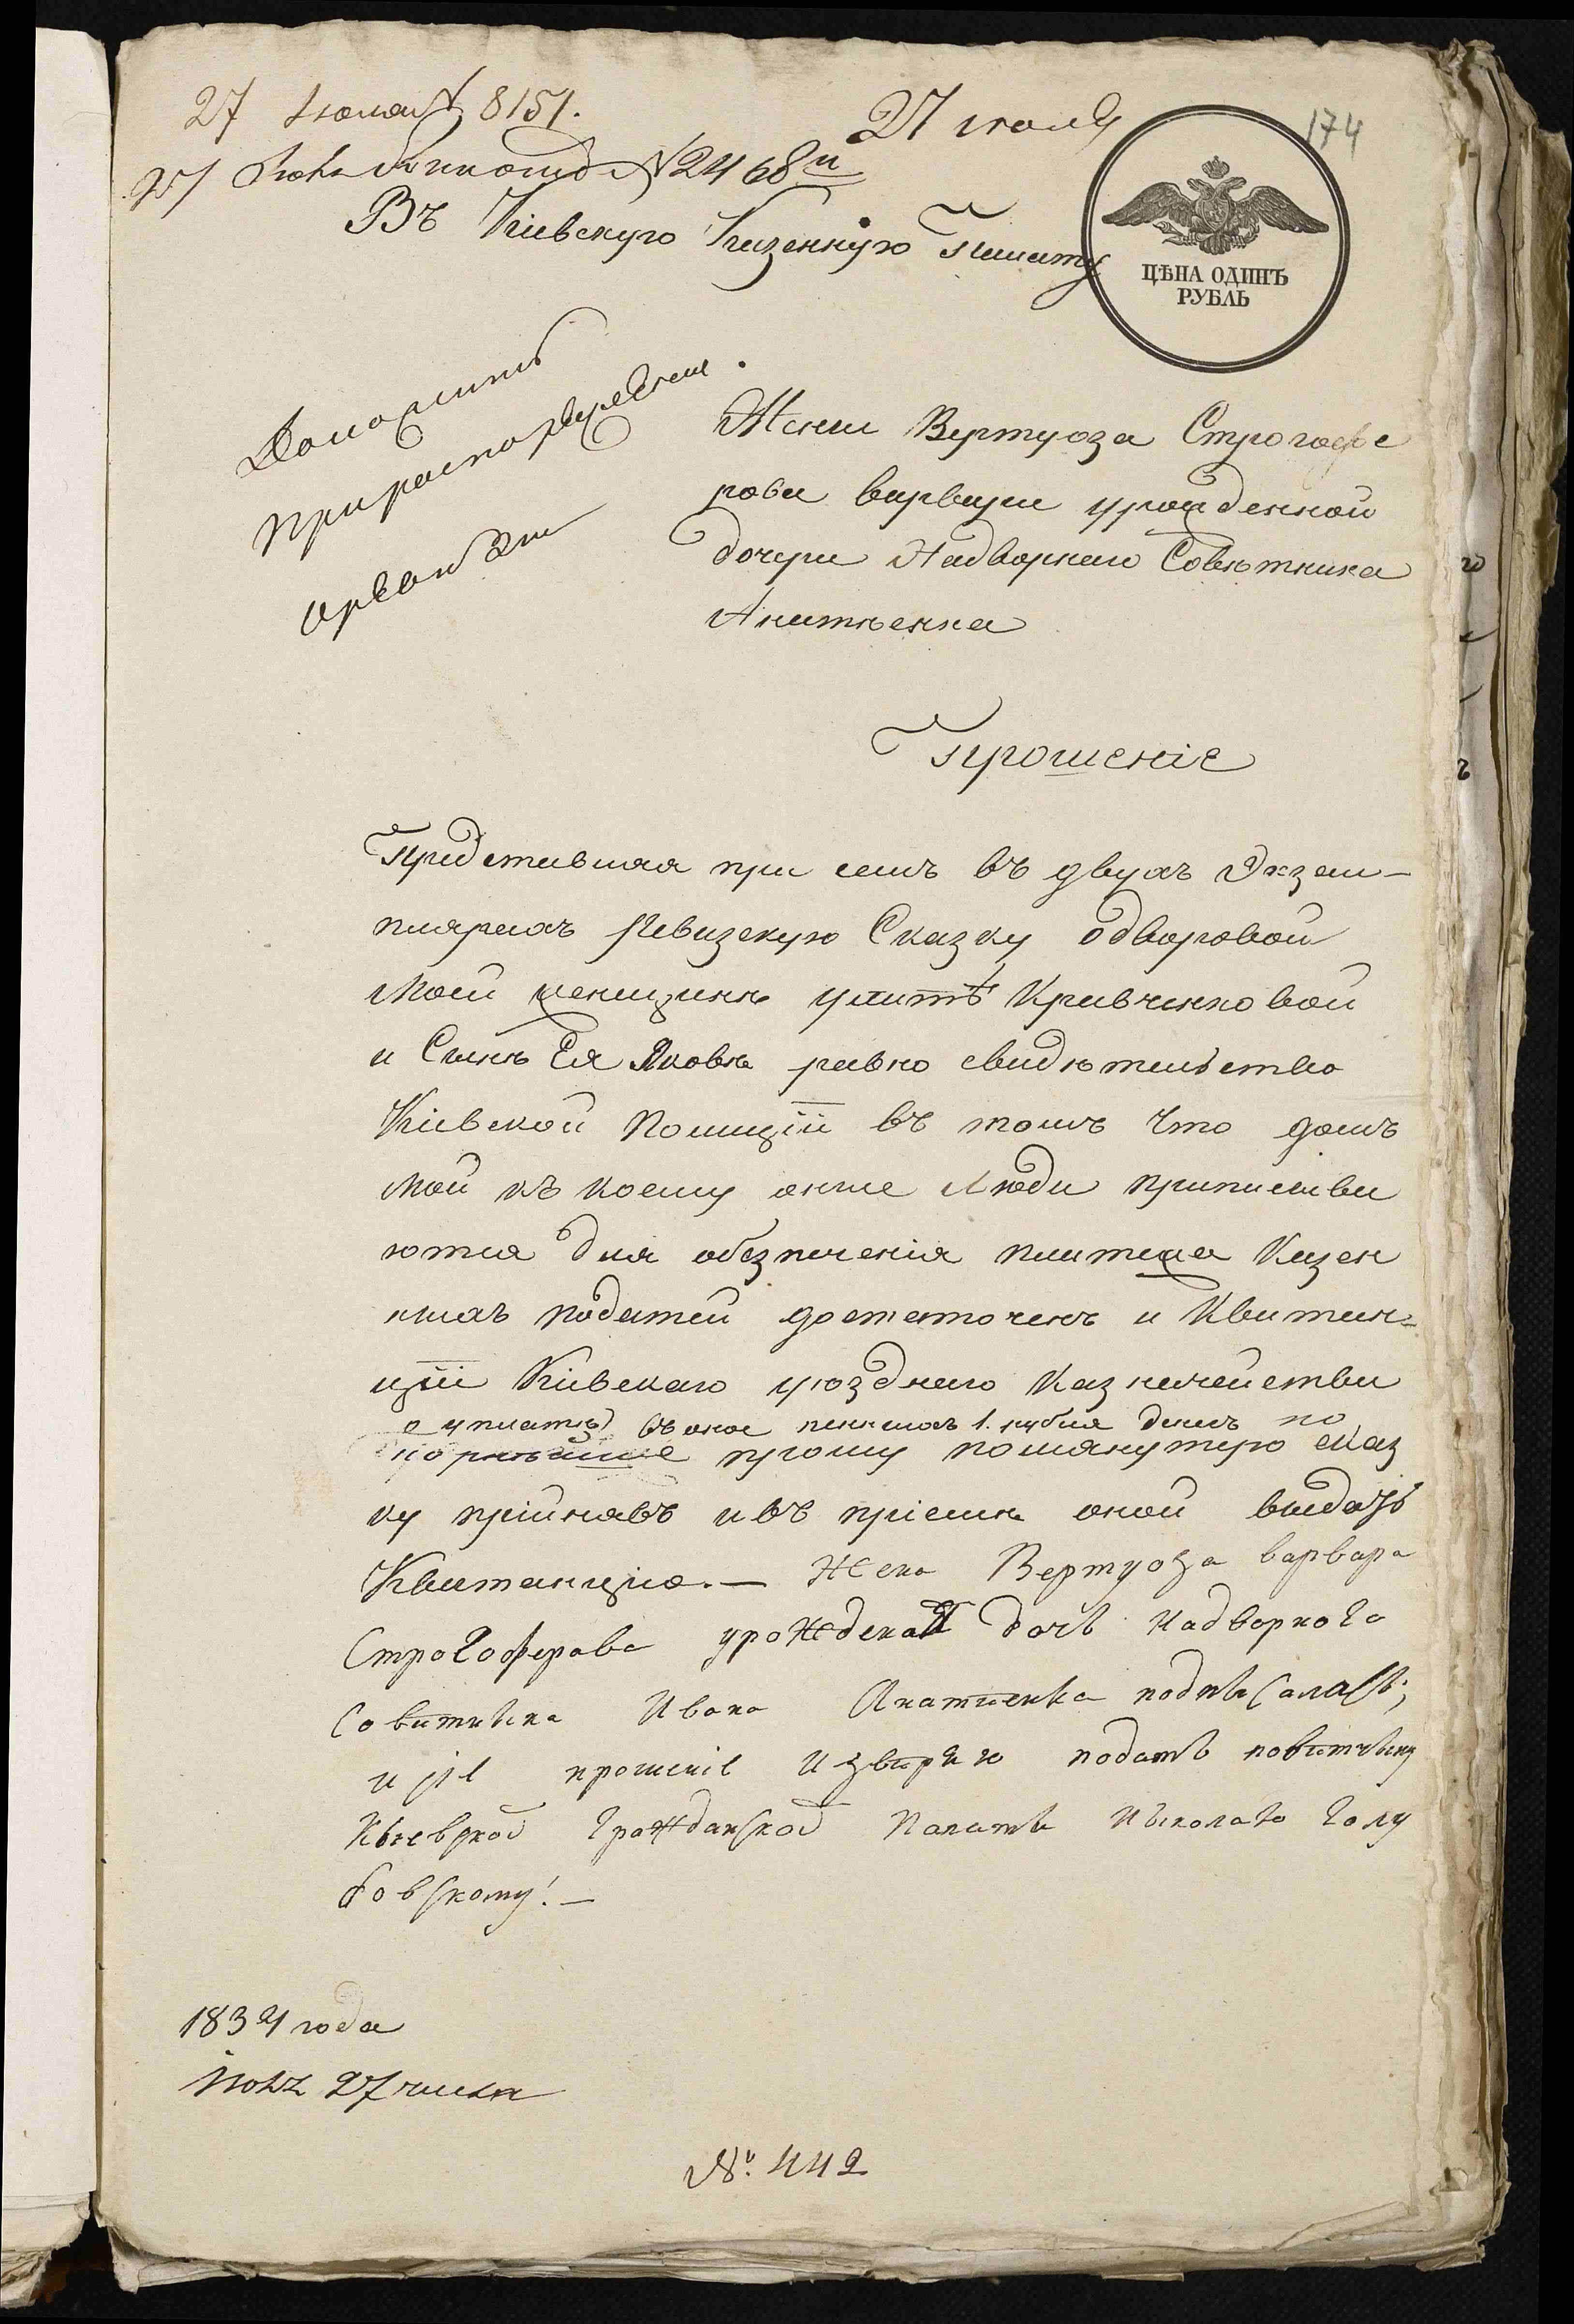 27 Июля № 8151.
27 июля
174
27 Июля № 2468й
Въ Кіевскую Казенную Палату
ЦѢНА ОДИНЪ
РУБЛЬ
Доложить
при распоряженіи
Жены Вертуоза Строгофе
рова варвары урожденной
дочери Надворнаго Совѣтника
Акатьенка
Прошеніе
Представляя при семъ въ двухъ Экзем-
плярахъ Ревизскую Сказку одворовой
моей женщинѣ улитѣ Кравченковой
и Сынѣ Ея Яковѣ равно свидѣтельство
Кіевской Полиціи въ томъ что домъ
мой къ коему оные Люди приписыва
ются для обезпеченія платежа Казен
ныхъ податей достаточенъ и Квитан-
ціи Кіевскаго уѣзднаго Казначейства
о уплатѣ въ оное пенныхъ 1. рубля денегъ по
корнѣйше прошу помянутую сказ
ку прійнявъ и въ пріемѣ оной выдать
Квитанцію.— Жена Вертуоза варвара
Строгоферова урожденая дочь надворного
Совитныка Ивана Акатиенка подпысалась;
и сіе прошеніе извиряю подать повитчыку
Кыевской Гражданской Палаты Ныколаю Голу
бовскому!.—
1834 года
Іюля 27 числа
№. 442